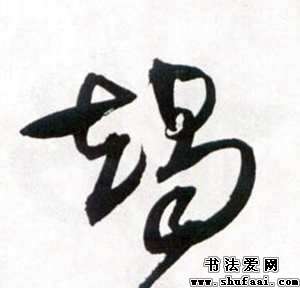 竭
书法爱网
www.shufaai.com